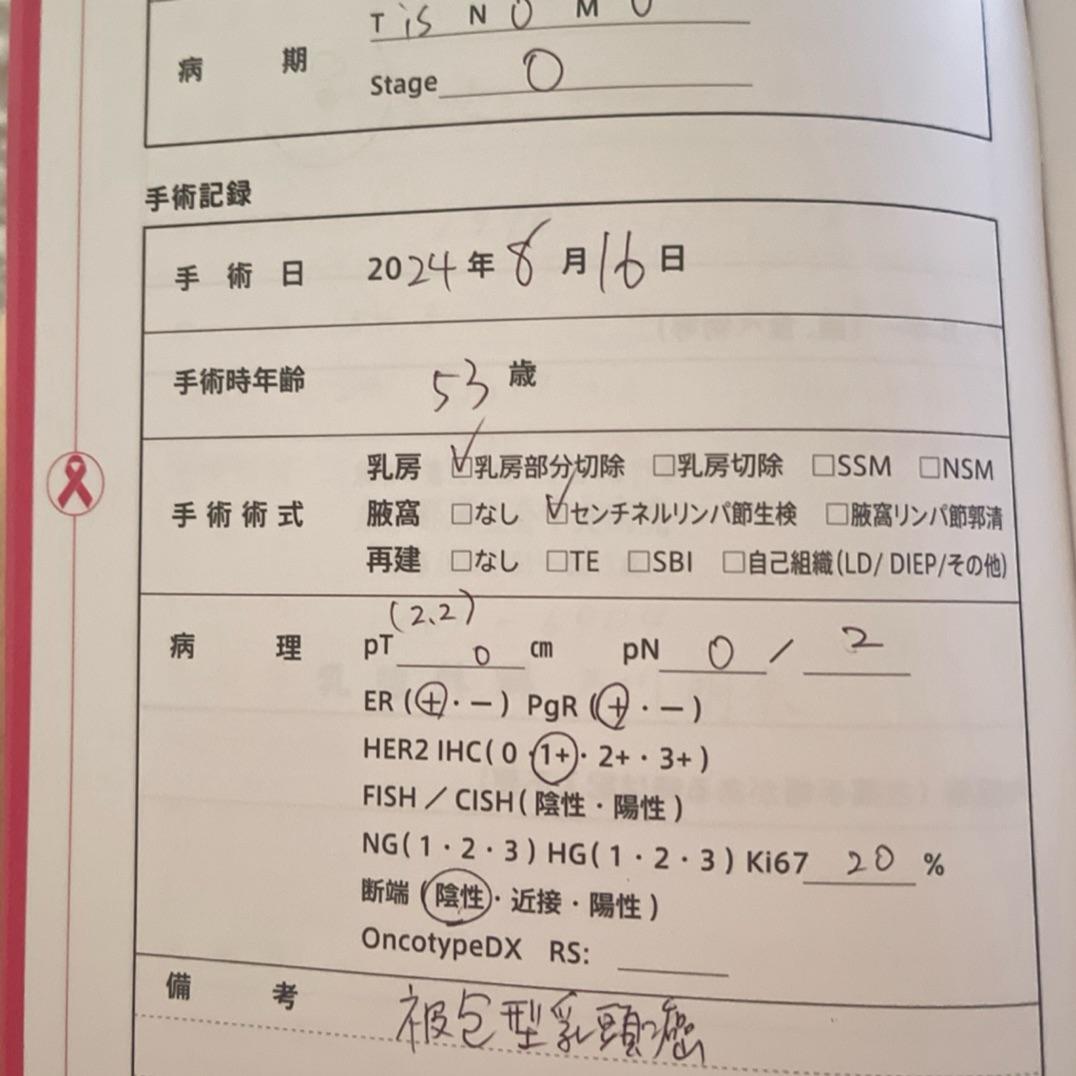 T is N 0 M 0
病期
Stage 0
手術記録
手術日 2024年8月16日
手術時年齢 53歳
乳房 ☑乳房部分切除 □乳房切除 □SSM □NSM
手術術式 腋窩 □なし ☑センチネルリンパ節生検 □腋窩リンパ節郭清
再建 □なし □TE □SBI □自己組織(LD/ DIEP/その他)
(2.2)
病理 pT 0 cm pN 0 / 2
ER (+・−) PgR (+・−)
HER2 IHC(0・1+・2+・3+)
FISH/CISH(陰性・陽性)
NG(1・2・3) HG(1・2・3) Ki67 20 %
断端(陰性・近接・陽性)
OncotypeDX RS:
備考
被包型乳頭癌